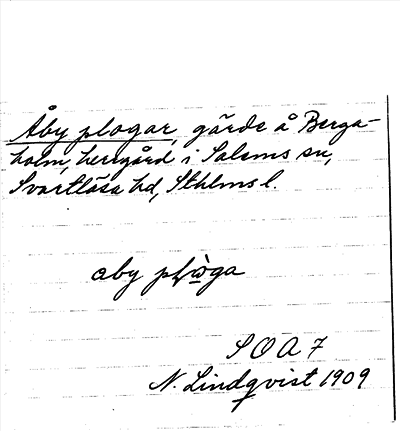 Åby plogar, gärde å Berga-
holm, herrgård i Salems sn,
Svartlösa hd, Sthlms l.
aby plòga
S O A 7
N. Lindqvist 1909